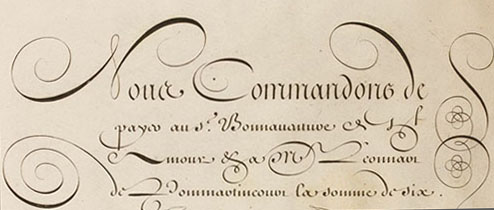 Nous Commandons de
payer au Sr. Bonnauanture & St
Amour & a M Leonnar
de Dommartincour la somme de six.